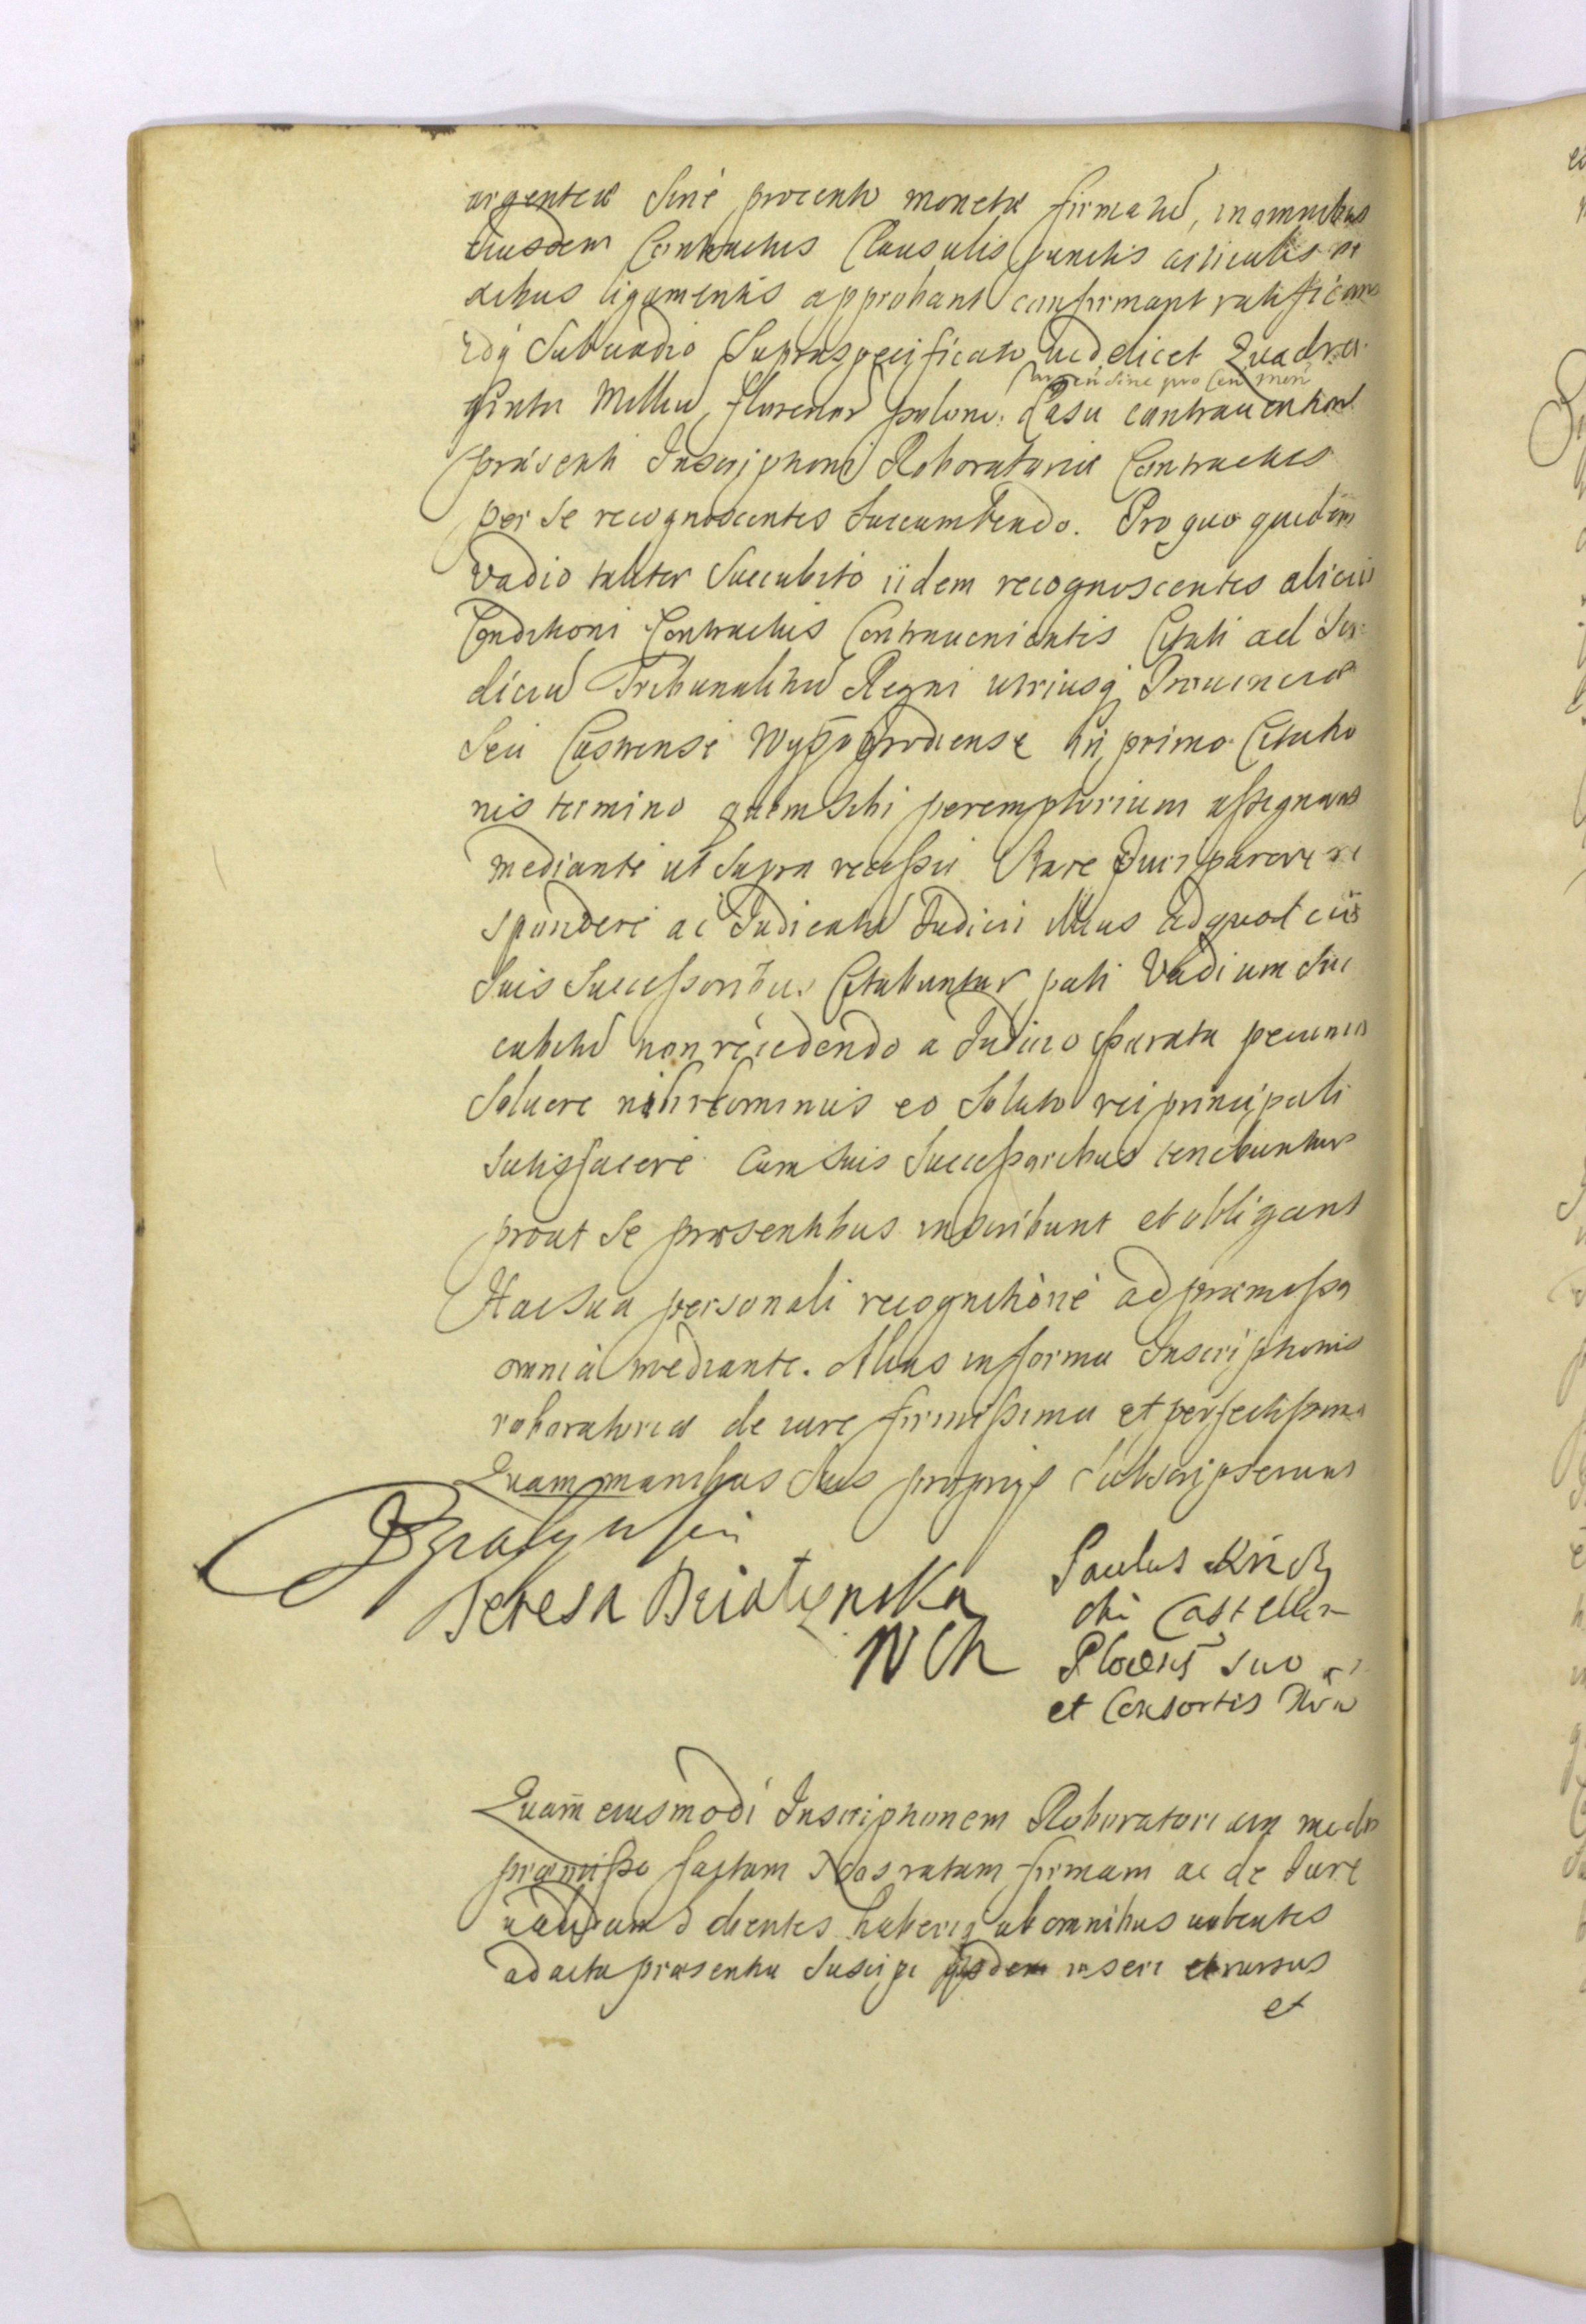 argenteæ sine procento monetæ firmatu, in omnibus
eiusdem Contractus Clausulis punctis articulis ne
xibus ligamentis approbant confirmant ratificant
Idq Sub vadio Supraspecificato videlicet Quadra
argen sine pro cen mon
ginta Millia florenor polon. Casu contrauention
præsenti Inscriptioni Roboratoriæ Contractus
per se recognoscentes Succumbendo. Pro quo quidem
vadio taliter Succubito iidem recognoscentes alicui
Conditioni Contractus Contrauenientes Citati ad Iu
diciu Tribunalitiu Regni utriusq Prouinciæ
Seu Castrense Wyszogrodiense in primo Citatio
nis termino quem sibi peremptorium assignant
mediante ut supra recessu Stare Iuri parere re
spondere ac Iudicatu Iudicii illius ad quod cu
Suis Successoribus Citabuntur pati Vadium Suc
cubitu non recedendo a Iudicio parata pecunia
Soluere nihilominus eo Soluto rei principali
Satisfacere cum suis Successoribus tenebuntur
prout se præsentibus inscribunt et obligant
Hac sua personali recognitione ad præmissa
omnia mediante. Alias in forma Inscriptionis
roboratoriæ de iure firmissima et perfectissima
Quam manibus suis propriis subscripserunt
Teresa Działynska
Paulus
Castella
NCh
Plocens suo
et Consortis
Quam eiusmodi Inscriptionem Roboratoriam modo
præmisso factam Nos ratam firmam ac de Iure
validam dicentes haberiq ab omnibus uolentes
ad acta præsentia Suscipi inseri et rursus
et